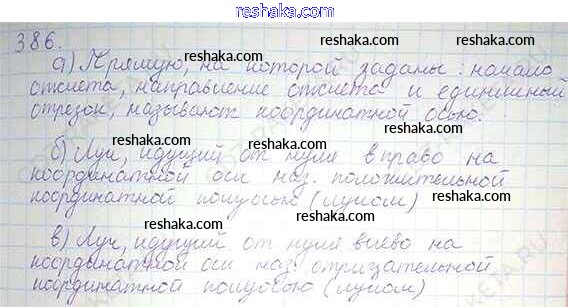 reshaka.com
386.
reshaka.com reshaka.com
а) Прямую, на которой заданы: начало
отсчета, направление отсчета и единичный
отрезок, называют координатной осью.
reshaka.com reshaka.com reshaka.com
б) Луч, идущий от нуля вправо на
координатной оси наз. положительной
координатной полуосью (лучом)
reshaka.com reshaka.com reshaka.com
в) Луч, идущий от нуля влево на
координатной оси наз. отрицательной
координатной полуосью (лучом)
reshaka.com reshaka.com reshaka.com